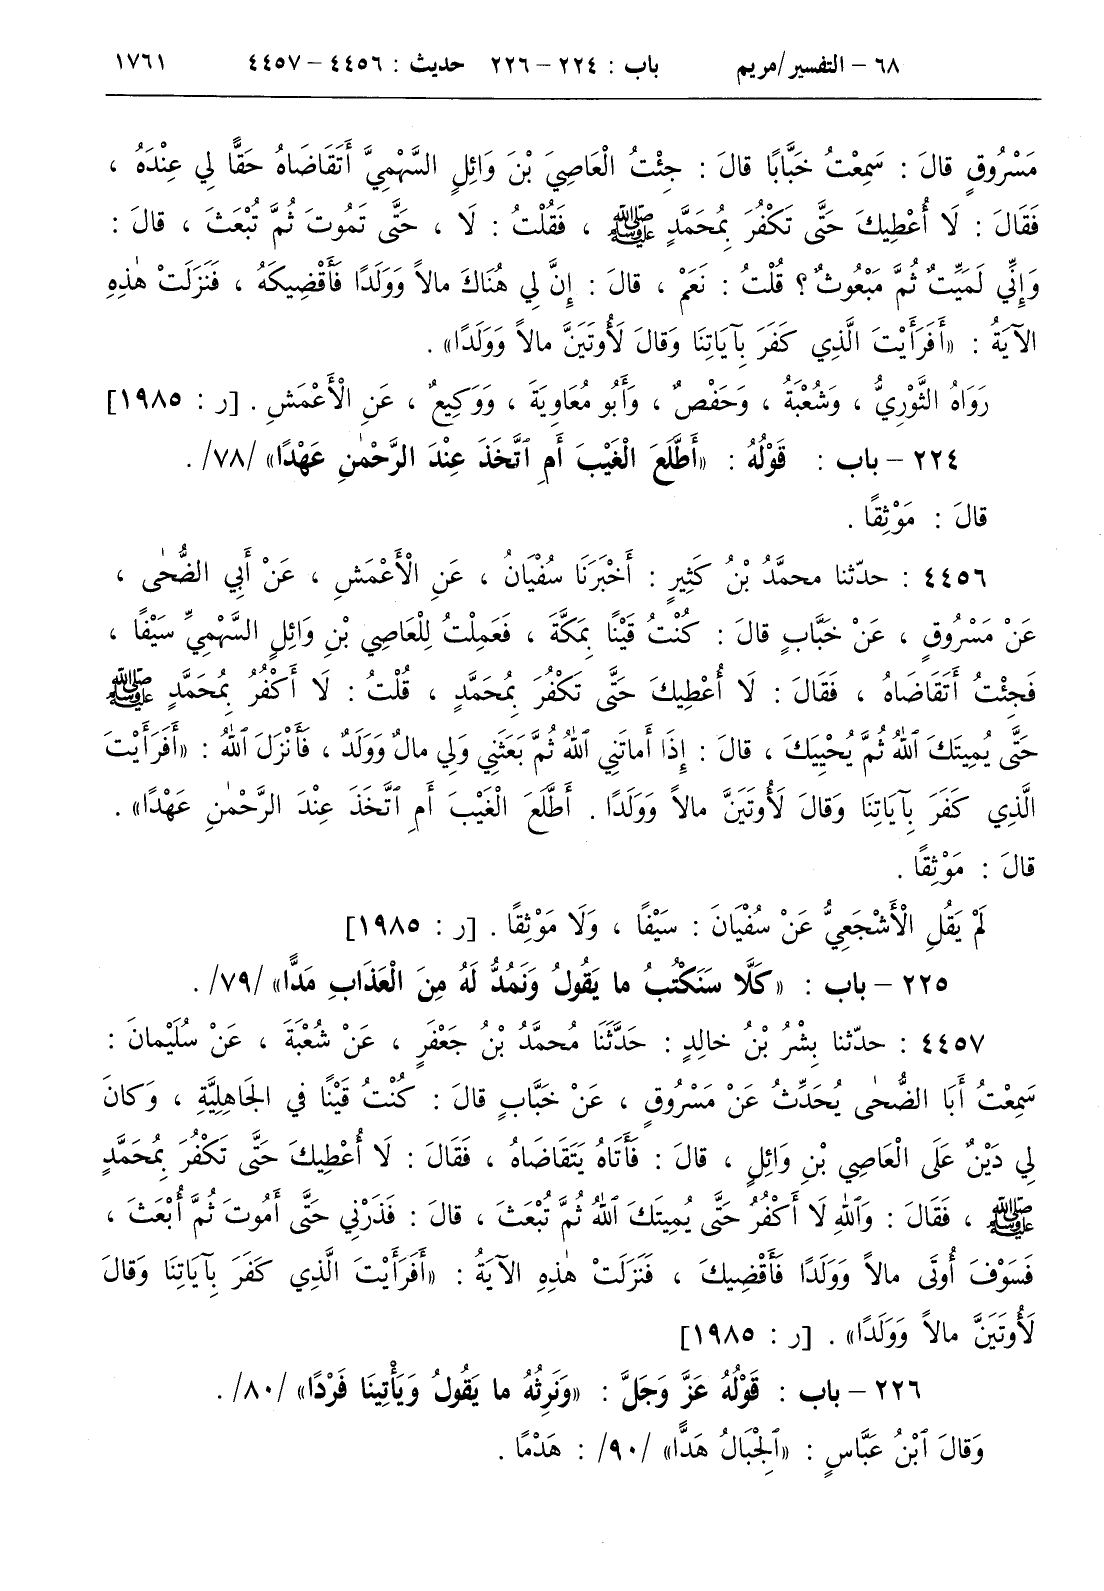 ٦٨ – التفسير/مريم باب : ٢٢٤ – ٢٢٦ حديث : ٤٤٥٦ – ٤٤٥٧ ١٧٦١
مَسْرُوقٍ قالَ : سَمِعْتُ خَبَّابًا قالَ : جِئْتُ الْعَاصِيَ بْنَ وَائِلٍ السَّهْمِيَّ أَتَقَاضَاهُ حَقًّا لِي عِنْدَهُ ،
فَقَالَ : لَا أُعْطِيكَ حَتَّى تَكْفُرَ بِمُحَمَّدٍ ﷺ ، فَقُلْتُ : لَا ، حَتَّى تَمُوتَ ثُمَّ تُبْعَثَ ، قالَ :
وَإِنِّي لَمَيِّتٌ ثُمَّ مَبْعُوثٌ؟ قُلْتُ : نَعَمْ ، قالَ : إِنَّ لِي هُنَاكَ مالاً وَوَلَدًا فَأَقْضِيكَهُ ، فَنَزَلَتْ هٰذِهِ
الآيَةُ : «أَفَرَأَيْتَ الَّذِي كَفَرَ بِآيَاتِنَا وَقالَ لَأُوتَيَنَّ مالاً وَوَلَدًا» .
رَوَاهُ الثَّوْرِيُّ ، وَشُعْبَةُ ، وَحَفْصٌ ، وَأَبُو مُعَاوِيَةَ ، وَوَكِيعٌ ، عَنِ الْأَعْمَشِ . [ر : ١٩٨٥]
٢٢٤ – باب : قَوْلُهُ : «أَطَّلَعَ الْغَيْبَ أَمِ ٱتَّخَذَ عِنْدَ الرَّحْمٰنِ عَهْدًا» /٧٨/ .
قالَ : مَوْثِقًا .
٤٤٥٦ : حدّثنا محمَّدُ بْنُ كَثِيرٍ : أَخْبَرَنَا سُفْيَانُ ، عَنِ الْأَعْمَشِ ، عَنْ أَبِي الضُّحٰى ،
عَنْ مَسْرُوقٍ ، عَنْ خَبَّابٍ قالَ : كُنْتُ قَيْنًا بِمَكَّةَ ، فَعَمِلْتُ لِلْعَاصِي بْنِ وَائِلٍ السَّهْمِيِّ سَيْفًا ،
فَجِئْتُ أَتَقَاضَاهُ ، فَقَالَ : لَا أُعْطِيكَ حَتَّى تَكْفُرَ بِمُحَمَّدٍ ، قُلْتُ : لَا أَكْفُرُ بِمُحَمَّدٍ ﷺ
حَتَّى يُمِيتَكَ ٱللهُ ثُمَّ يُحْيِيَكَ ، قالَ : إِذَا أَماتَنِي ٱللهُ ثُمَّ بَعَثَنِي وَلِي مالٌ وَوَلَدٌ ، فَأَنْزَلَ ٱللهُ : «أَفَرَأَيْتَ
الَّذِي كَفَرَ بِآيَاتِنَا وَقالَ لَأُوتَيَنَّ مالاً وَوَلَدًا . أَطَّلَعَ الْغَيْبَ أَمِ ٱتَّخَذَ عِنْدَ الرَّحْمٰنِ عَهْدًا» .
قالَ : مَوْثِقًا .
لَمْ يَقُلِ الْأَشْجَعِيُّ عَنْ سُفْيَانَ : سَيْفًا ، وَلَا مَوْثِقًا . [ر : ١٩٨٥]
٢٢٥ – باب : «كَلَّا سَنَكْتُبُ ما يَقُولُ وَنَمُدُّ لَهُ مِنَ الْعَذَابِ مَدًّا» /٧٩/ .
٤٤٥٧ : حدّثنا بِشْرُ بْنُ خالِدٍ : حَدَّثَنَا مُحمَّدُ بْنُ جَعْفَرٍ ، عَنْ شُعْبَةَ ، عَنْ سُلَيْمانَ :
سَمِعْتُ أَبَا الضُّحٰى يُحَدِّثُ عَنْ مَسْرُوقٍ ، عَنْ خَبَّابٍ قالَ : كُنْتُ قَيْنًا في الجَاهِلِيَّةِ ، وَكانَ
لِي دَيْنٌ عَلَى الْعَاصِي بْنِ وَائِلٍ ، قالَ : فَأَتَاهُ يَتَقَاضَاهُ ، فَقَالَ : لَا أُعْطِيكَ حَتَّى تَكْفُرَ بِمُحَمَّدٍ
ﷺ ، فَقَالَ : وَٱللهِ لَا أَكْفُرُ حَتَّى يُمِيتَكَ ٱللهُ ثُمَّ تُبْعَثَ ، قالَ : فَذَرْنِي حَتَّى أَمُوتَ ثُمَّ أُبْعَثَ ،
فَسَوْفَ أُوتَى مالاً وَوَلَدًا فَأَقْضِيكَ ، فَنَزَلَتْ هٰذِهِ الآيَةُ : «أَفَرَأَيْتَ الَّذِي كَفَرَ بِآيَاتِنَا وَقالَ
لَأُوتَيَنَّ مالاً وَوَلَدًا» . [ر : ١٩٨٥]
٢٢٦ – باب : قَوْلُهُ عَزَّ وَجَلَّ : «وَنَرِثُهُ ما يَقُولُ وَيَأْتِينَا فَرْدًا» /٨٠/ .
وَقالَ ٱبْنُ عَبَّاسٍ : «ٱلجِبَالُ هَدًّا» /٩٠/ : هَدْمًا .